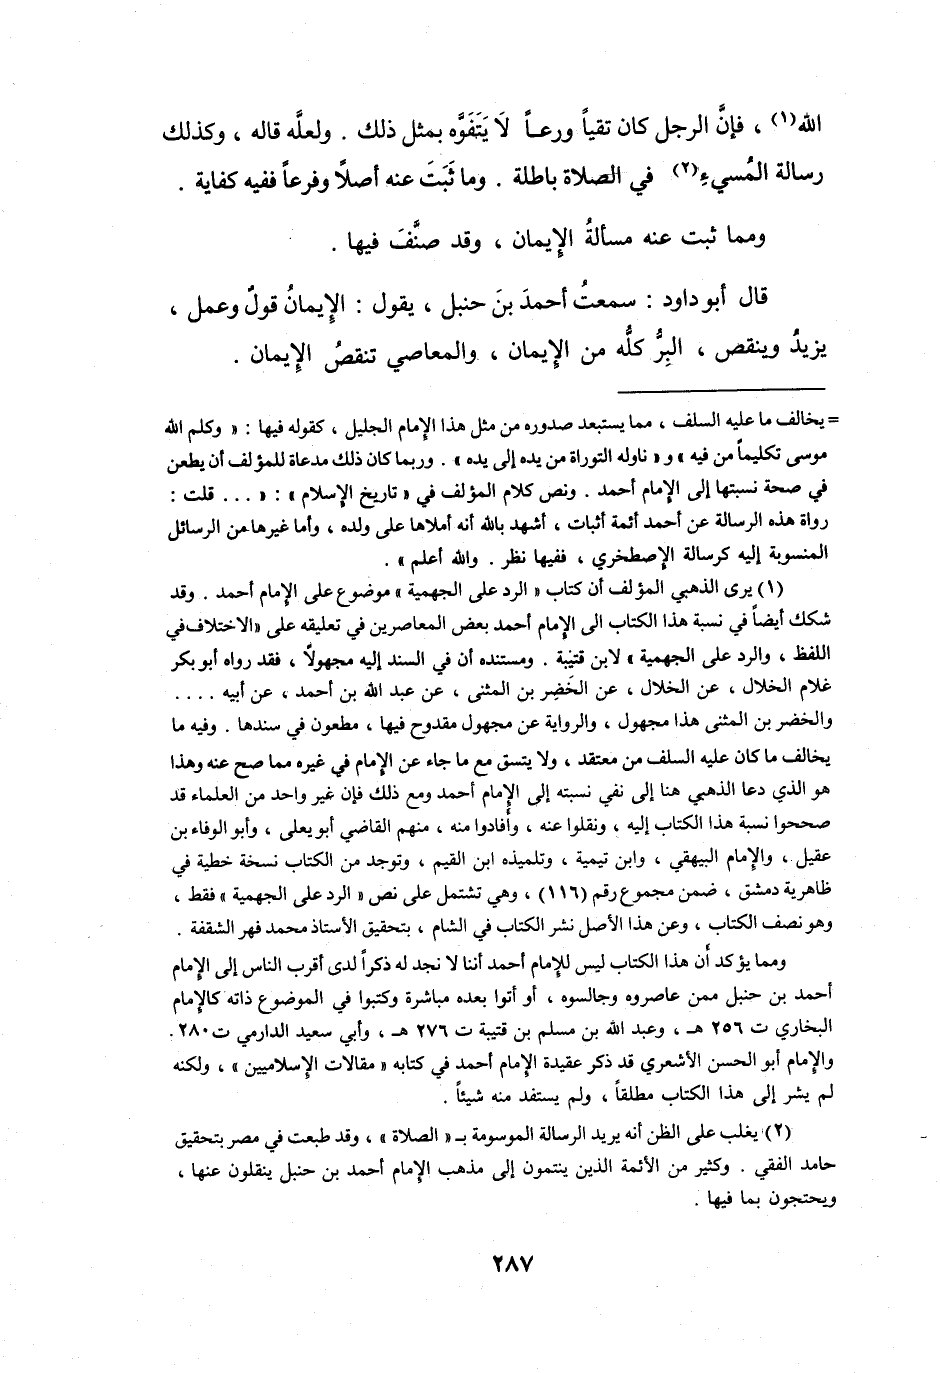 الله(١) ، فإنَّ الرجل كان تقياً ورعـاً لَا يَتَفَوَّه بمثل ذلك . ولعلَّه قاله ، وكذلك
رسالة المُسيء(٢) في الصلاة باطلة . وما ثَبَتَ عنه أصلًا وفرعاً ففيه كفاية .
ومما ثبت عنه مسألةُ الإِيمان ، وقد صنَّفَ فيها .
قال أبو داود : سمعتُ أحمدَ بنَ حنبل ، يقول : الإِيمانُ قولٌ وعمل ،
يزيدُ وينقص ، البِرُّ كلُّه من الإِيمان ، والمعاصي تنقصُ الإِيمان .
= يخالف ما عليه السلف ، مما يستبعد صدوره من مثل هذا الإمام الجليل ، كقوله فيها : « وكلم الله
موسى تكليماً من فيه » و « ناوله التوراة من يده إلى يده » . وربما كان ذلك مدعاة للمؤلف أن يطعن
في صحة نسبتها إلى الإمام أحمد . ونص كلام المؤلف في « تاريخ الإسلام » : « ... قلت :
رواة هذه الرسالة عن أحمد أئمة أثبات ، أشهد بالله أنه أملاها على ولده ، وأما غيرها من الرسائل
المنسوبة إليه كرسالة الإصطخري ، ففيها نظر . والله أعلم » .
(١) يرى الذهبي المؤلف أن كتاب « الرد على الجهمية » موضوع على الإمام أحمد . وقد
شكك أيضاً في نسبة هذا الكتاب الى الإمام أحمد بعض المعاصرين في تعليقه على «الاختلاف في
اللفظ ، والرد على الجهمية » لابن قتيبة . ومستنده أن في السند إليه مجهولاً ، فقد رواه أبو بكر
غلام الخلال ، عن الخلال ، عن الخَضِر بن المثنى ، عن عبد الله بن أحمد ، عن أبيه ....
والخضر بن المثنى هذا مجهول ، والرواية عن مجهول مقدوح فيها ، مطعون في سندها . وفيه ما
يخالف ما كان عليه السلف من معتقد ، ولا يتسق مع ما جاء عن الإمام في غيره مما صح عنه وهذا
هو الذي دعا الذهبي هنا إلى نفي نسبته إلى الإمام أحمد ومع ذلك فإن غير واحد من العلماء قد
صححوا نسبة هذا الكتاب إليه ، ونقلوا عنه ، وأفادوا منه ، منهم القاضي أبو يعلى ، وأبو الوفاء بن
عقيل ، والإمام البيهقي ، وابن تيمية ، وتلميذه ابن القيم ، وتوجد من الكتاب نسخة خطية في
ظاهرية دمشق ، ضمن مجموع رقم (١١٦) ، وهي تشتمل على نص « الرد على الجهمية » فقط ،
وهو نصف الكتاب ، وعن هذا الأصل نشر الكتاب في الشام ، بتحقيق الأستاذ محمد فهر الشقفة .
ومما يؤكد أن هذا الكتاب ليس للإمام أحمد أننا لا نجد له ذكراً لدى أقرب الناس إلى الإمام
أحمد بن حنبل ممن عاصروه وجالسوه ، أو أتوا بعده مباشرة وكتبوا في الموضوع ذاته كالإمام
البخاري ت ٢٥٦ هـ ، وعبد الله بن مسلم بن قتيبة ت ٢٧٦ هـ ، وأبي سعيد الدارمي ت ٢٨٠ .
والإمام أبو الحسن الأشعري قد ذكر عقيدة الإمام أحمد في كتابه « مقالات الإسلاميين » ، ولكنه
لم يشر إلى هذا الكتاب مطلقاً ، ولم يستفد منه شيئاً .
(٢) يغلب على الظن أنه يريد الرسالة الموسومة بـ « الصلاة » ، وقد طبعت في مصر بتحقيق
حامد الفقي . وكثير من الأئمة الذين ينتمون إلى مذهب الإمام أحمد بن حنبل ينقلون عنها ،
ويحتجون بما فيها .
٢٨٧